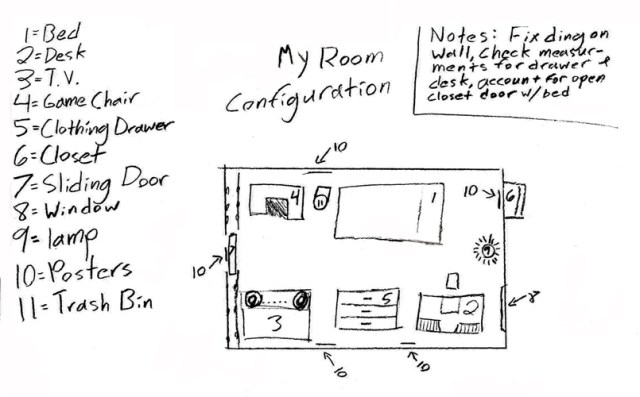 1=Bed
2=Desk
3=T.V.
4=Game Chair
5=Clothing Drawer
6=Closet
7=Sliding Door
8=Window
9=lamp
10=Posters
11=Trash Bin
My Room
Configuration
Notes: Fix ding on
wall, check measur-
ments for drawer &
desk, account for open
closet door w/bed
10
4
11
1
10
6
9
10
7
8
3
5
2
10
10